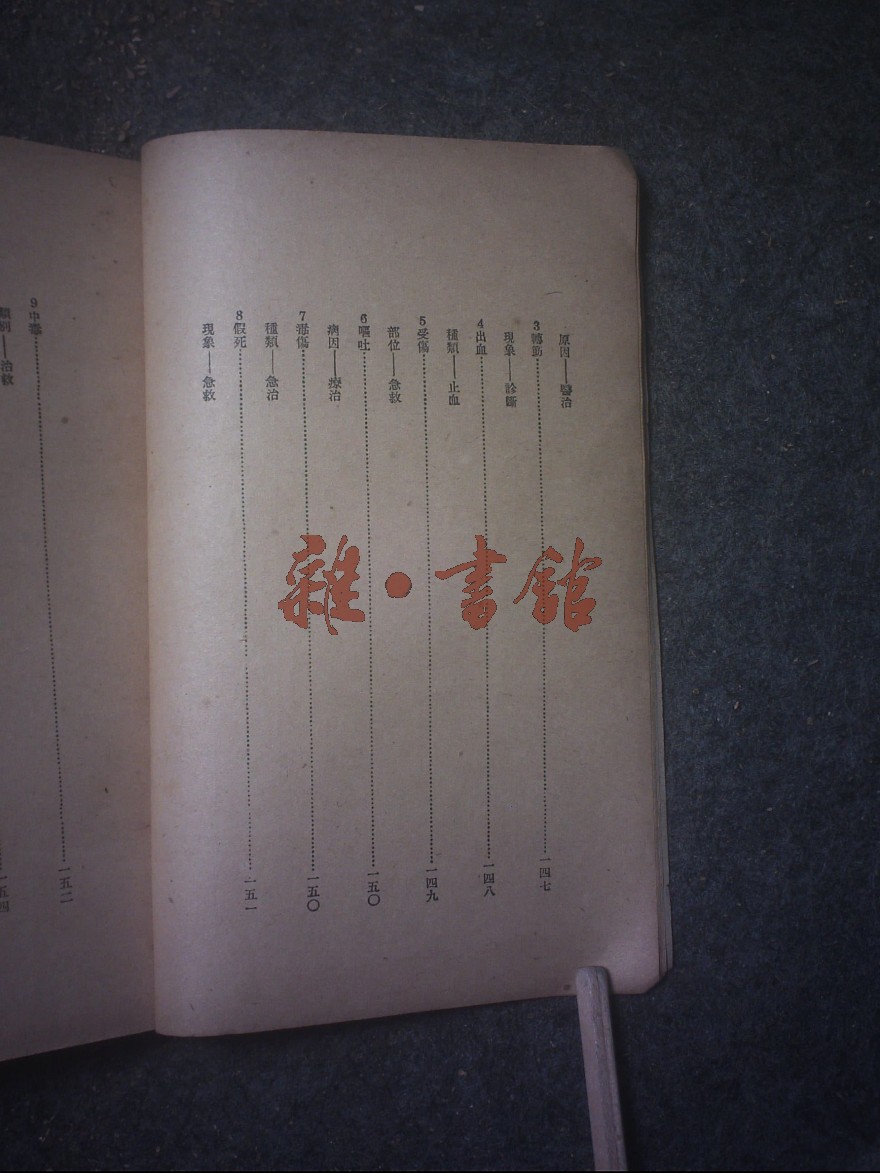 原因——醫治
3轉筋……一四七
現象——診斷
4出血……一四八
種類——止血
5受傷……一四九
部位——急救
6嘔吐……一五〇
病因——療治
7毒傷……一五〇
種類——急治
8假死……一五一
現象——急救
9中毒……一五二
類別——治救
一五四
雜·書館